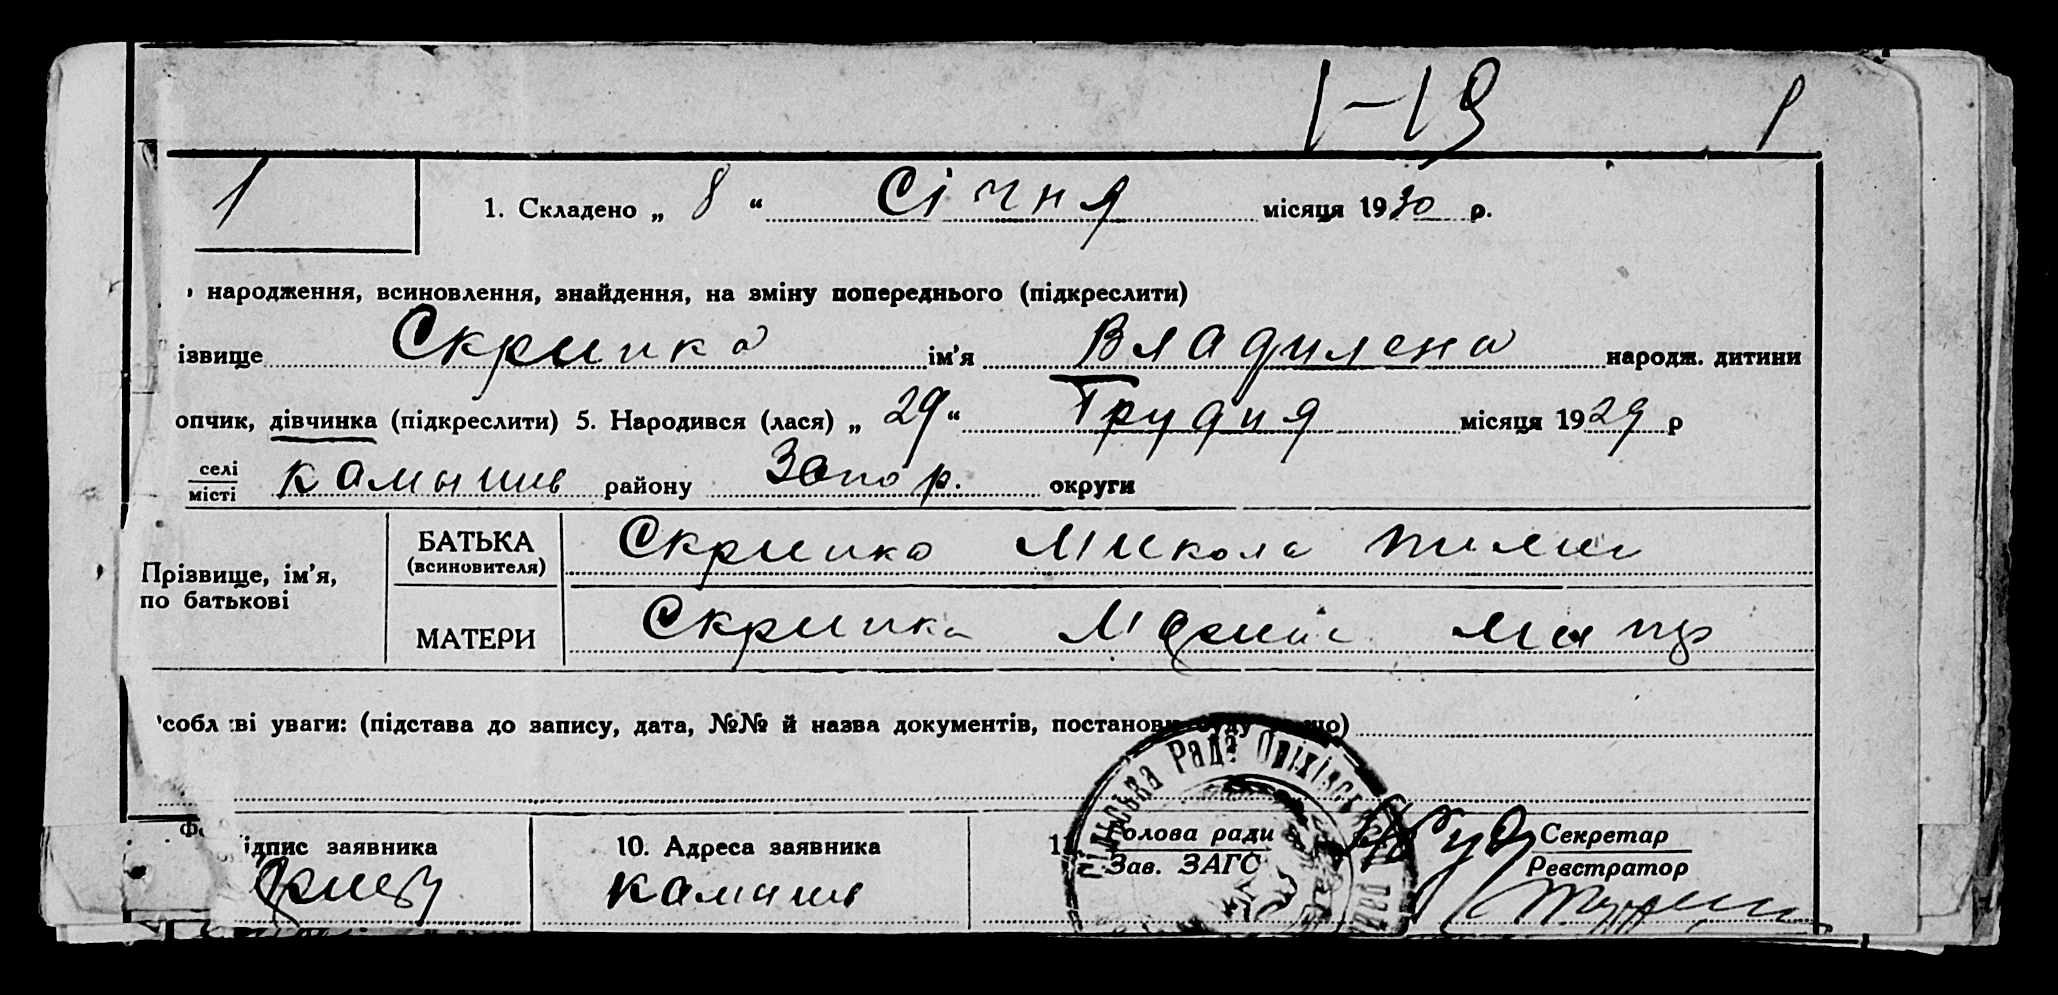 1-19 1
1
1. Складено „ 8 “ Січня місяця 1930 р.
народження, всиновлення, знайдення, на зміну попереднього (підкреслити)
ізвище Скрипка ім’я Владилена народж. дитини
опчик, дівчинка (підкреслити) 5. Народився (лася) „ 29 “ Грудня місяця 1929 р
селі
місті Камышив району Запор. округи
Прізвище, ім’я,
по батькові
БАТЬКА
(всиновителя)
Скрипка Микола
МАТЕРИ
Скрипка
собл ві уваги: (підстава до запису, дата, №№ й назва документів, постанови що)
ідпис заявника
10. Адреса заявника
Камышив
Голова ради
Зав. ЗАГС
Секретар
Реєстратор
ільська Рада Оріхівськ